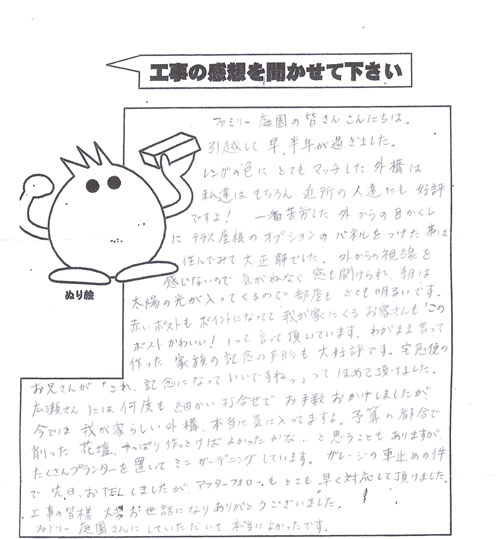 工事の感想を聞かせて下さい
ファミリー庭園の皆さんこんにちは。
引越して早、半年が過ぎました。
レンガの色にとてもマッチした外構は
私達はもちろん近所の人達にも好評
ですよ！ 一番苦労した外からの目かくし
にテラス屋根のオプションのパネルをつけた事は
住んでみて大正解でした。外からの視線を
感じないので気がねなく窓も開けられ、朝は
太陽の光が入ってくるので部屋もとても明るいです。
赤いポストもポイントになってて我が家にくるお客さんも"この
ポストかわいい！"って言って頂いています。わがまま言って
作った家族の記念の手形も大好評です。宅急便の
お兄さんが「これ、記念になっていいですねっ」ってほめて頂けました。
広瀬さんには何度も細かい打合せでお手数おかけしましたが
今では我が家らしい外構、本当に気に入ってますよ。予算の都合で
削った花壇、やっぱり作っとけばよかったかな…と思うこともありますが
たくさんプランターを置いてミニガーデニングしています。ガレージの車止めの件
で先日、おTELしましたが、アフターフォローもとても早く対応して頂けました。
工事の皆様大変お世話になりありがとうございました。
ファミリー庭園さんにしていただいて本当によかったです。
ぬり絵